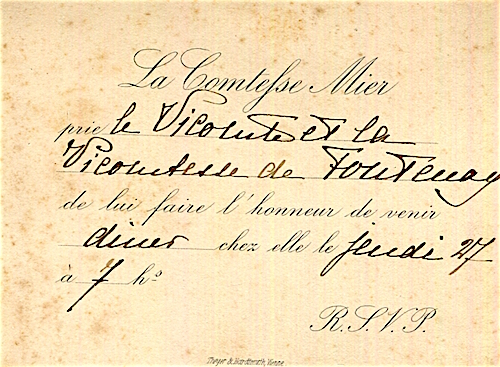 La Comtesse Mier
prie le Vicomte et la
Vicomtesse de Fontenay
de lui faire l'honneur de venir
diner chez elle le jeudi 27
à 7 hs
R.S.V.P.
Theyer & Hardtmuth, Vienne